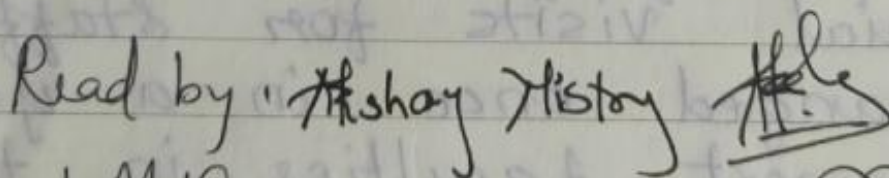 Read by : Akshay Mistry